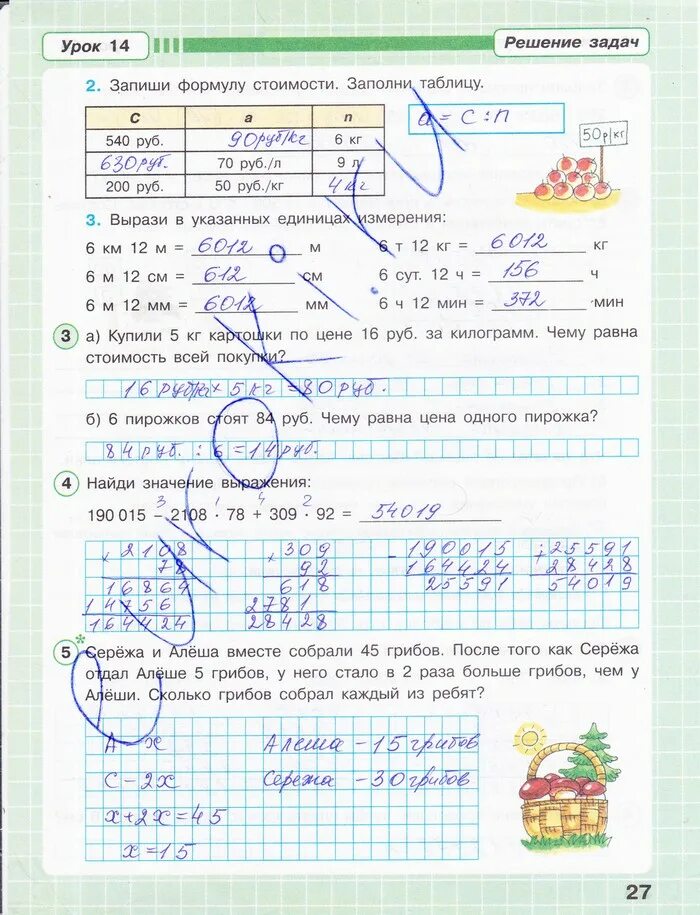 Урок 14
Решение задач
2. Запиши формулу стоимости. Заполни таблицу.
C a n
540 руб. 90 руб/кг 6 кг
630 руб. 70 руб./л 9 л
200 руб. 50 руб./кг 4 кг
a = C : П
50 р/кг
3. Вырази в указанных единицах измерения:
6 км 12 м = 6012 м
6 т 12 кг = 6012 кг
6 м 12 см = 612 см
6 сут. 12 ч = 156 ч
6 м 12 мм = 6012 мм
6 ч 12 мин = 372 мин
3 а) Купили 5 кг картошки по цене 16 руб. за килограмм. Чему равна
стоимость всей покупки?
16 руб/кг × 5 кг = 80 руб.
б) 6 пирожков стоят 84 руб. Чему равна цена одного пирожка?
84 руб. : 6 = 14 руб.
4 Найди значение выражения:
3 1 4 2
190 015 − 2108 · 78 + 309 · 92 = 54019
× 2108
78
16864
14756
164424
× 309
92
618
2781
28428
- 190015
164424
25591
+ 25591
28428
54019
5* Серёжа и Алёша вместе собрали 45 грибов. После того как Серёжа
отдал Алёше 5 грибов, у него стало в 2 раза больше грибов, чем у
Алёши. Сколько грибов собрал каждый из ребят?
А – х
Алеша – 15 грибов
С – 2х
Сережа – 30 грибов
х + 2х = 45
х = 15
27